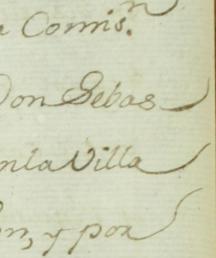 a Comisn.
Don Sebas
en la Villa
on, y por